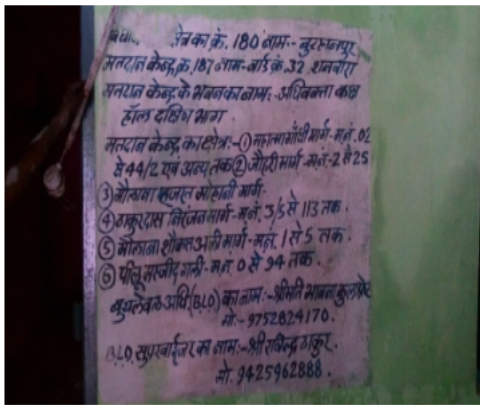 विधा. क्षेत्र का क्रं. 180 नाम:- बुरहानपुर
मतदान केन्द्र क्रं. 187 नाम- वार्ड क्रं. 32. शनवारा
मतदान केन्द्र के भवन का नाम:- अधिवक्ता कक्ष
हॉल दक्षिण भाग.
मतदान केन्द्र का क्षेत्र:- ① महात्मा गांधी मार्ग- म.नं. 02
से 44/2 एवं अन्य तक ② जौहरी मार्ग- म.नं.- 2 से 25
③ मौलाना हसरत मोहानी मार्ग-
④ ठाकुरदास निरंजन मार्ग- म.नं. 3/5 से 113 तक.
⑤ मौलाना शौकत अली मार्ग- म.नं. 1 से 5 तक.
⑥ पीलू मस्जीद गली- म.नं 0 से 94 तक.
बुथ लेवल अधि (BLO) का नाम:- श्रीमति भावना
मो.- 9752824170.
BLO सुपरवाईजर का नाम:- श्री रविन्द्र ठाकुर.
मो. 9425962888.